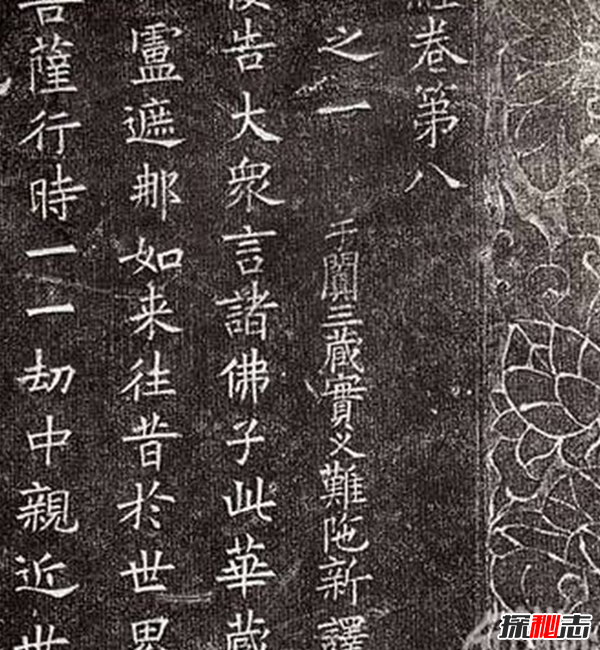 經卷第八
之一 于闐三藏實叉難陁新譯
復告大衆言諸佛子此華藏
盧遮那如来往昔於世界
菩薩行時一一劫中親近世
探秘志